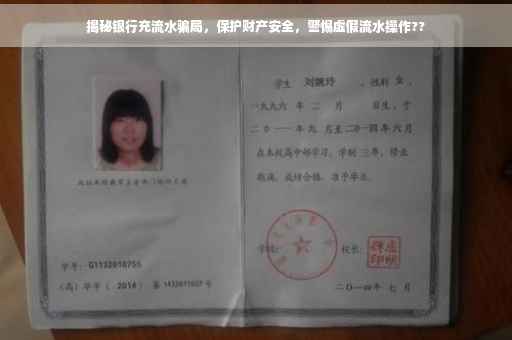 揭秘银行充流水骗局，保护财产安全，警惕虚假流水操作??
学生 刘婉玲 ，性别 女 ，
一九九六 年 二 月 日生，于
二〇一一 年 九 月至 二〇一四 年 六 月
在本校高中部学习，学制 三年，修业
期满，成绩合格，准予毕业。
学校： 校长：
二〇一四年 七 月
学号：G1132010755
（高）毕字（ 2014 ）第 1432011007 号